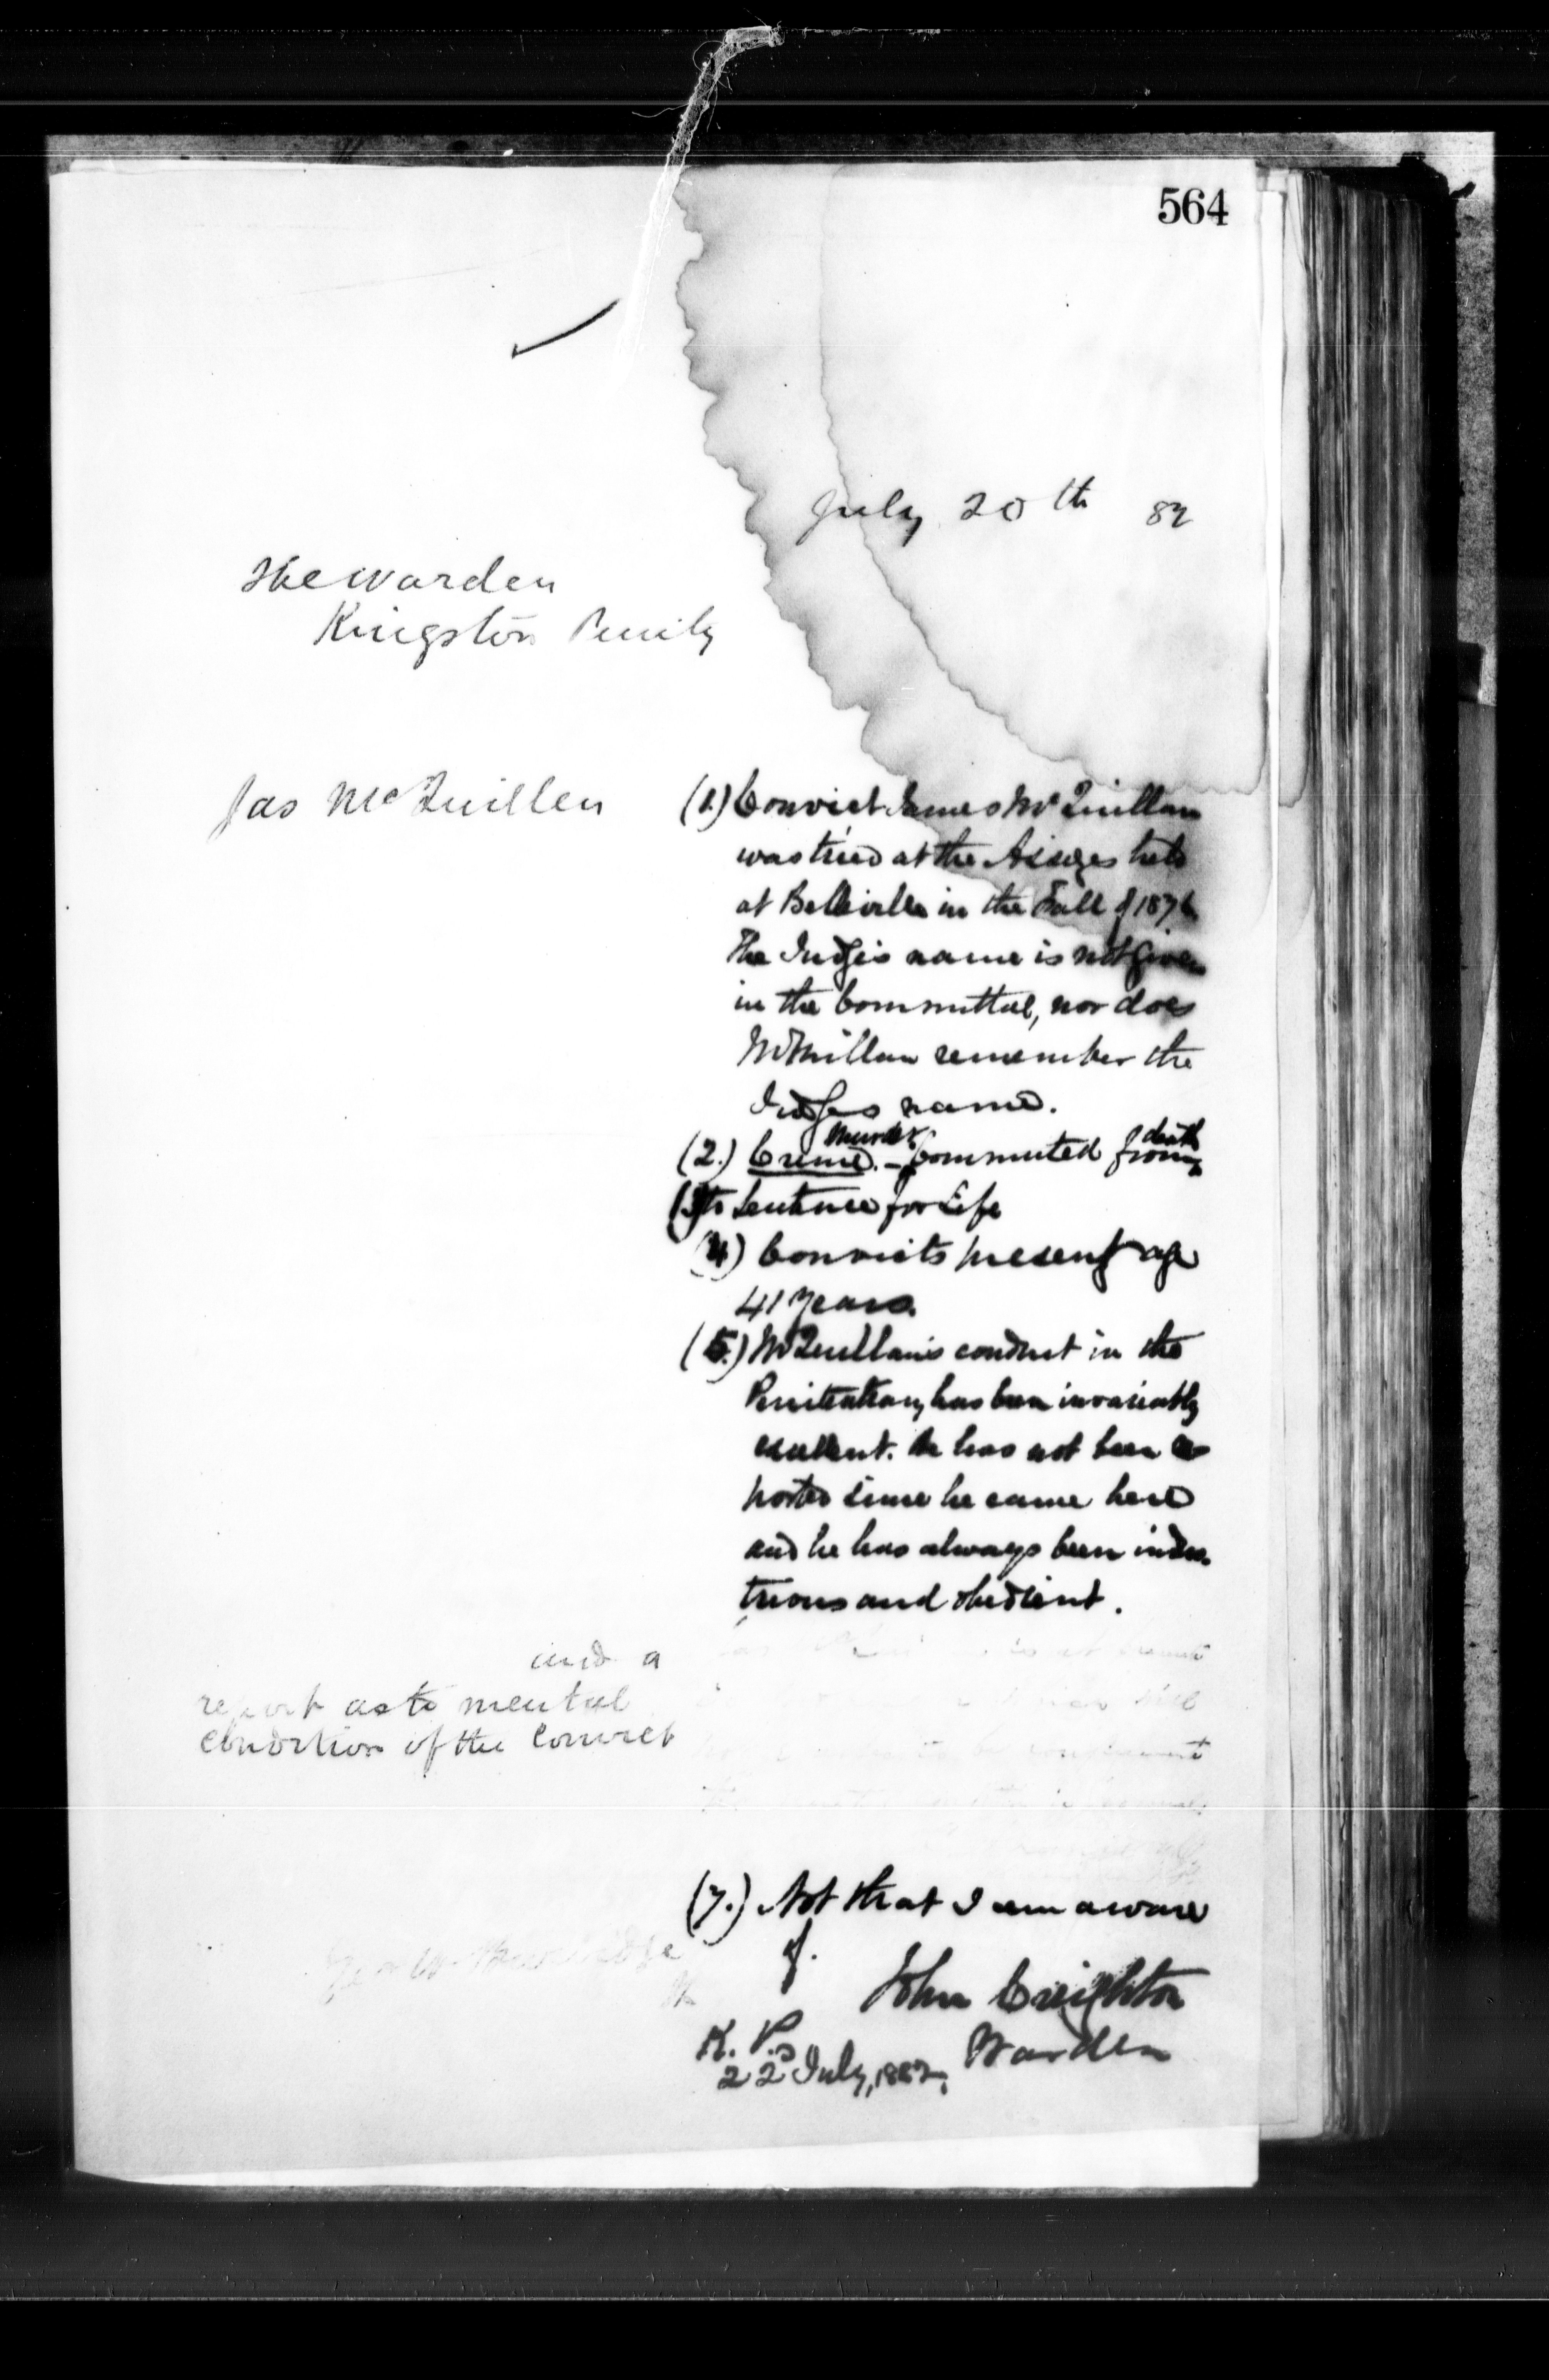 564
July 20th 82
The Warden
Kingston Penity
Jas McQuillen
(1.) Convict James McQuillan
was tried at the Assizes held
at Belleville in the Fall of 1876
The Judge's name is not given
in the Committal, nor does
McQuillan remember the
Judges name.
(2.) Crime. Murder. - Commuted from death
(3) to Sentence for Life
(4) Convicts present age
41 years.
(5.) McQuillan's conduct in the
Penitentiary has been invariably
excellent. He has not been re
ported since he came here
and he has always been indus
trious and obedient.
and a
report as to mental
condition of the Convict
(7.) Not that I am aware
of.
John Creighton
Warden
K. P.
22 July, 1882,